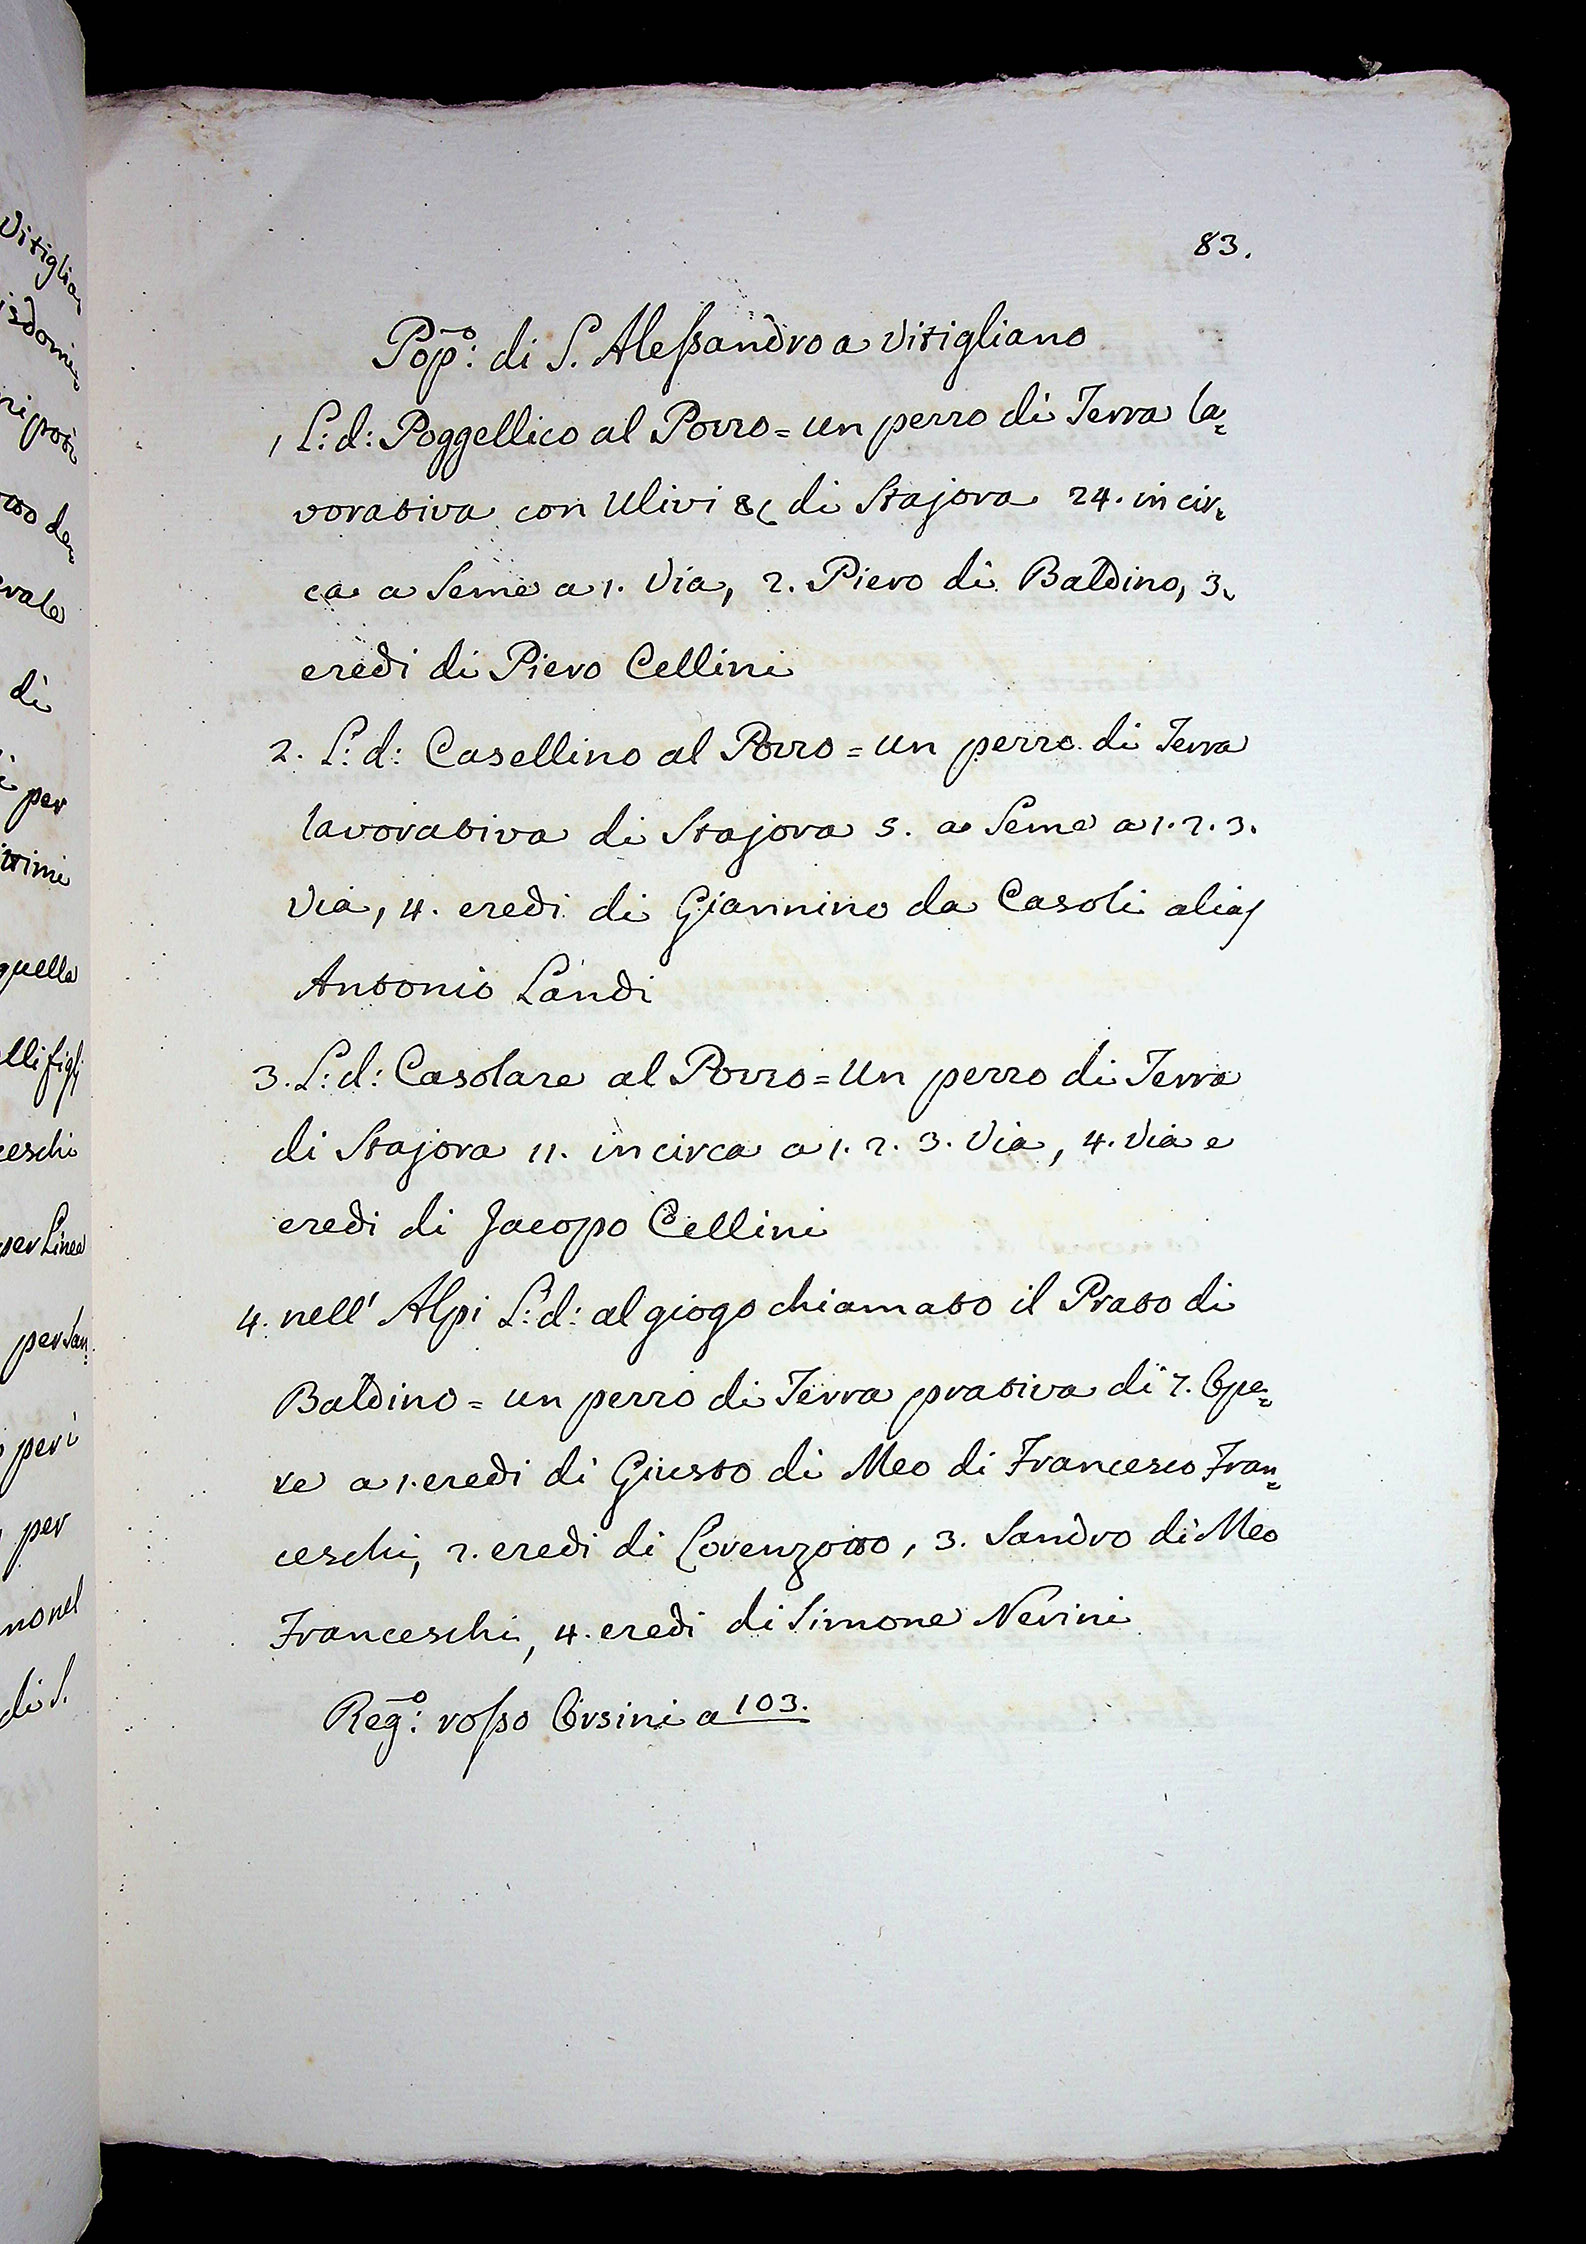 Vitiglia
isdomi
ri posi
do de
rale
di
i per
ttimi
quella
lli figlj
ceschi
per Linea
per San=
per i
per
no nel
di S.
83.
Pop.º: di S. Alessandro a Vitigliano
1 L: d: Poggellico al Pozzo = un pezzo di Terra la=
vorativa con Ulivi &c di Stajora 24. in cir=
ca a Seme a 1. Via, 2. Piero di Baldino, 3.
eredi di Piero Cellini
2. L: d: Casellino al Pozzo = un pezzo di Terra
lavorativa di Stajora 5. a Seme a 1. 2. 3.
Via, 4. eredi di Giannino da Casoli alias
Antonio Landi
3. L: d: Casolare al Pozzo = Un pezzo di Terra
di Stajora 11. in circa a 1. 2. 3. Via, 4. Via e
eredi di Jacopo Cellini
4. nell' Alpi L: d: al giogo chiamato il Prato di
Baldino = un pezzo di Terra prativa di 7. Ope=
re a 1. eredi di Giusto di Meo di Francesco Fran=
ceschi, 2. eredi di Lorenzotto, 3. Sandro di Meo
Franceschi, 4. eredi di Simone Nerini
Reg.º: rosso Orsini a 103.